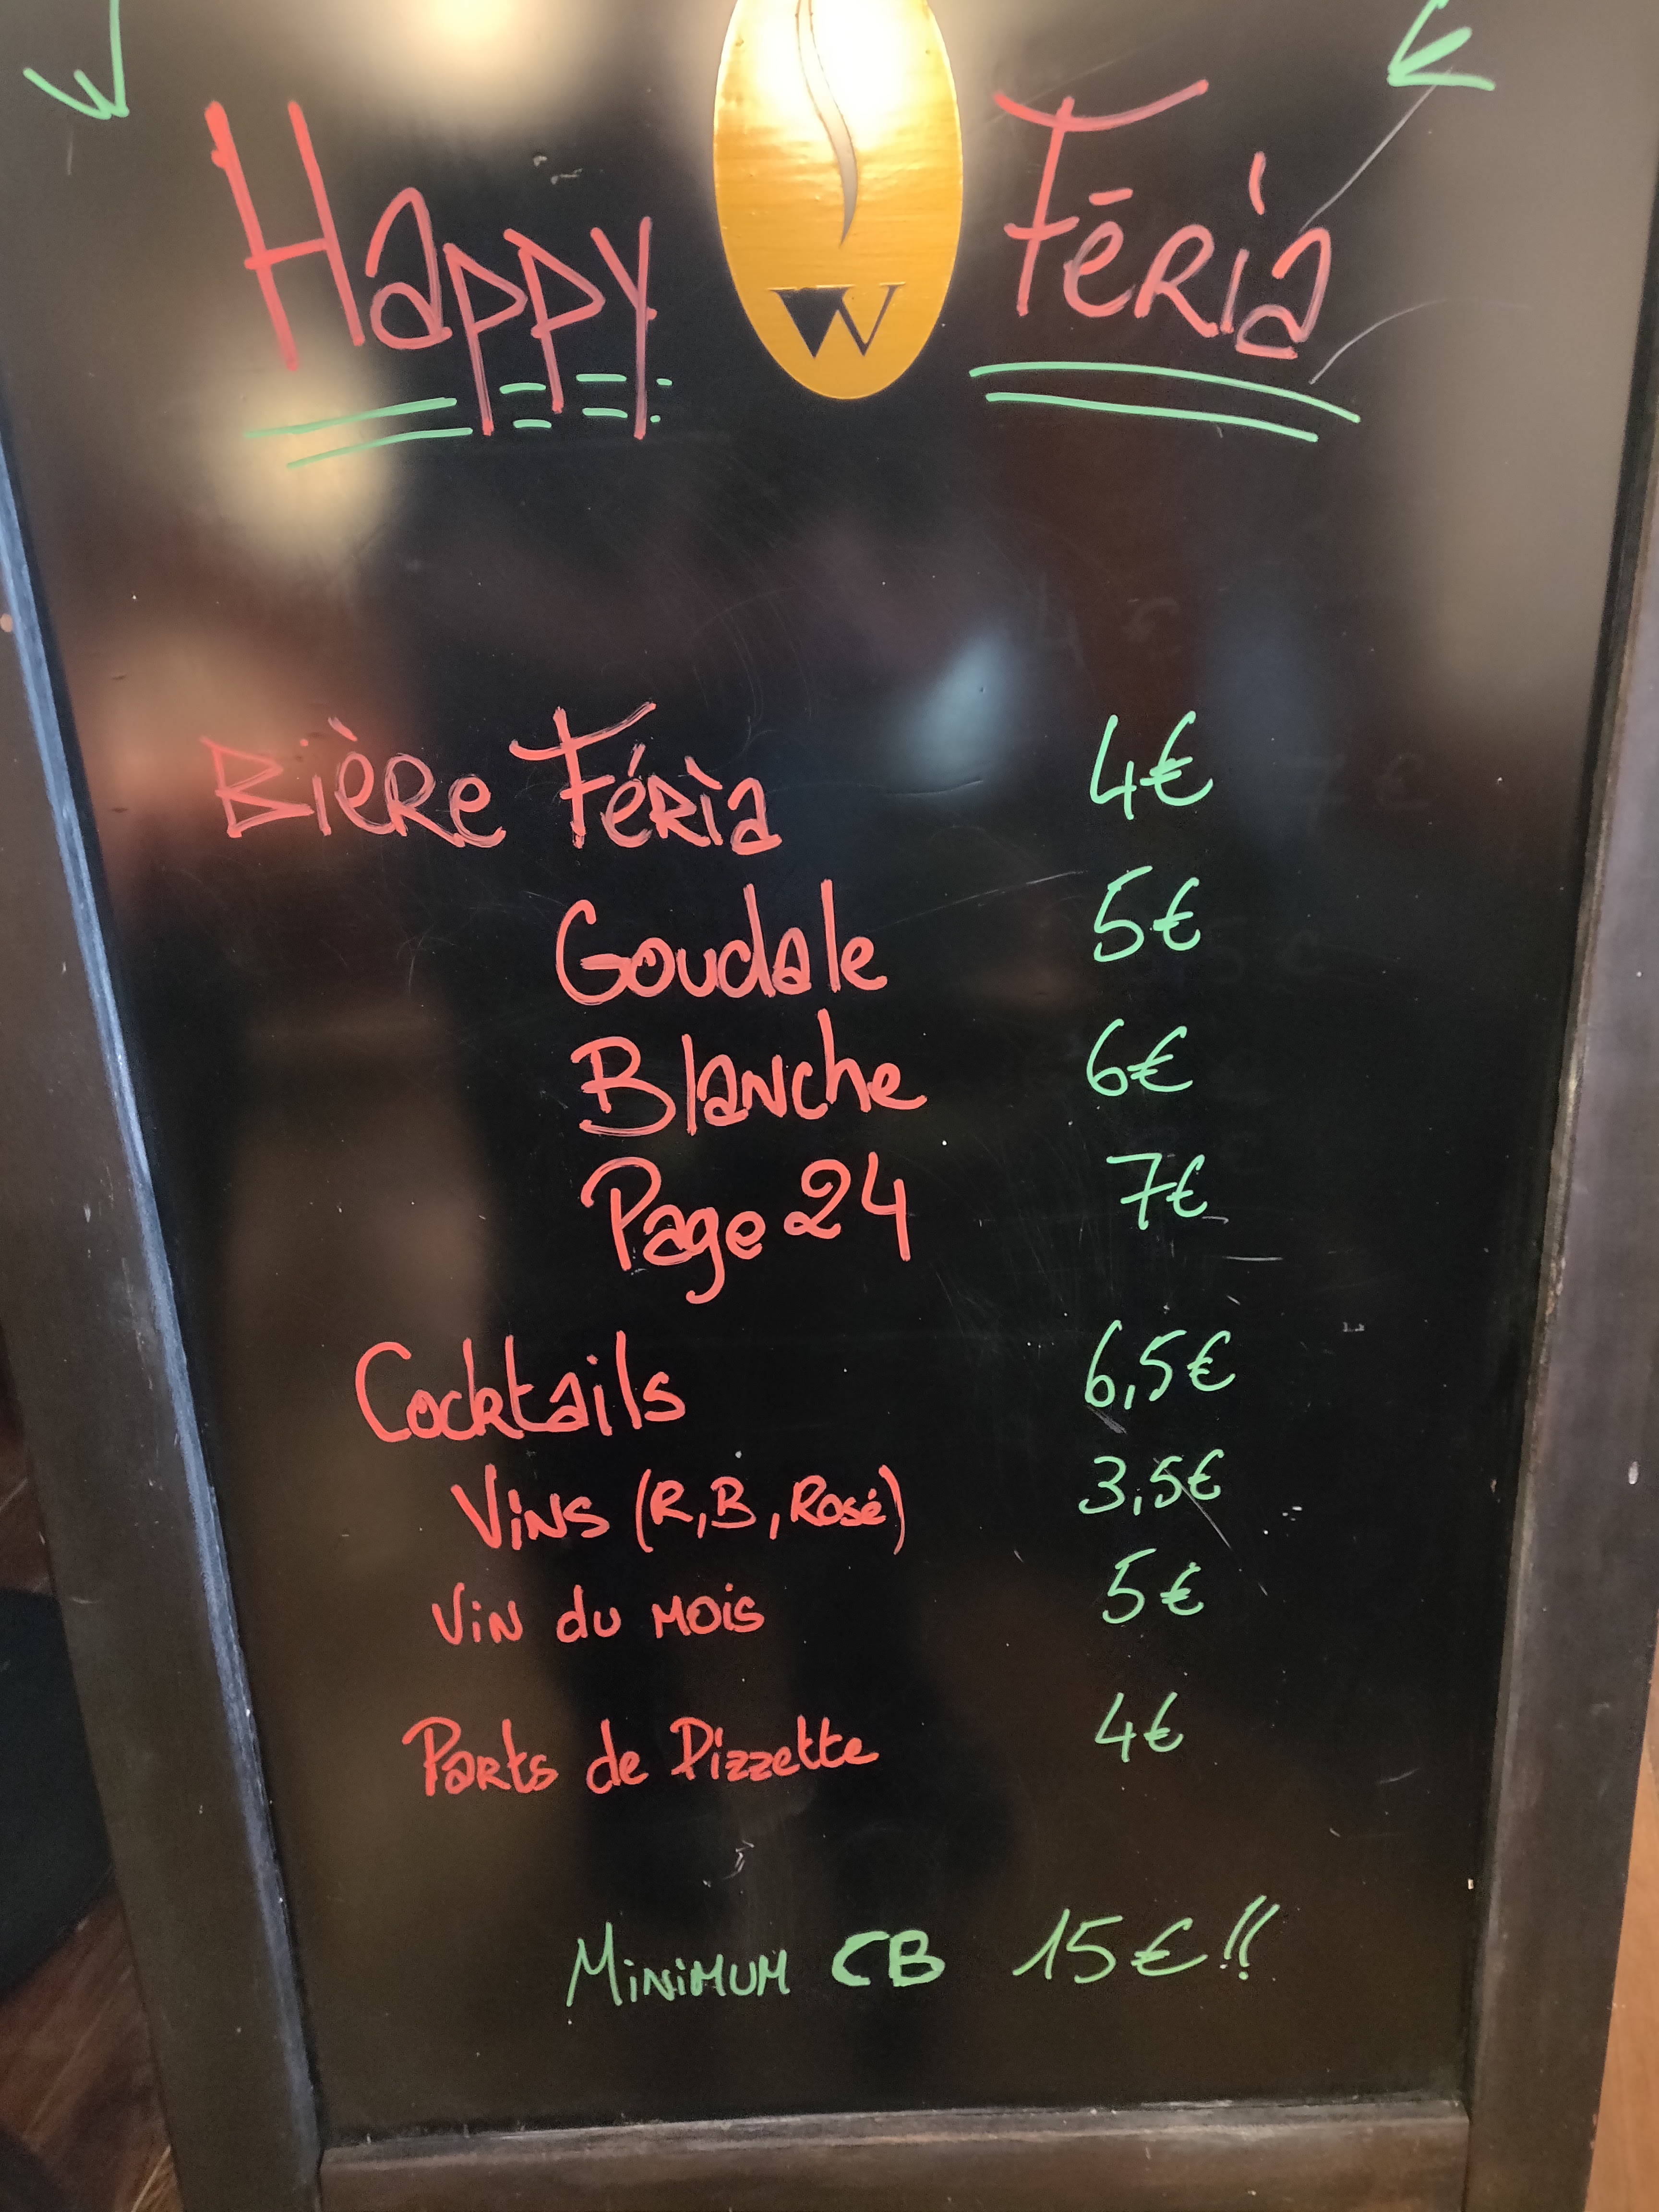 Happy Féria
W
Bière Féria 4€
Goudale 5€
Blanche 6€
Page 24 7€
Cocktails 6,5€
Vins (R, B, Rosé) 3,5€
Vin du mois 5€
Parts de Pizzette 4€
Minimum CB 15€!!